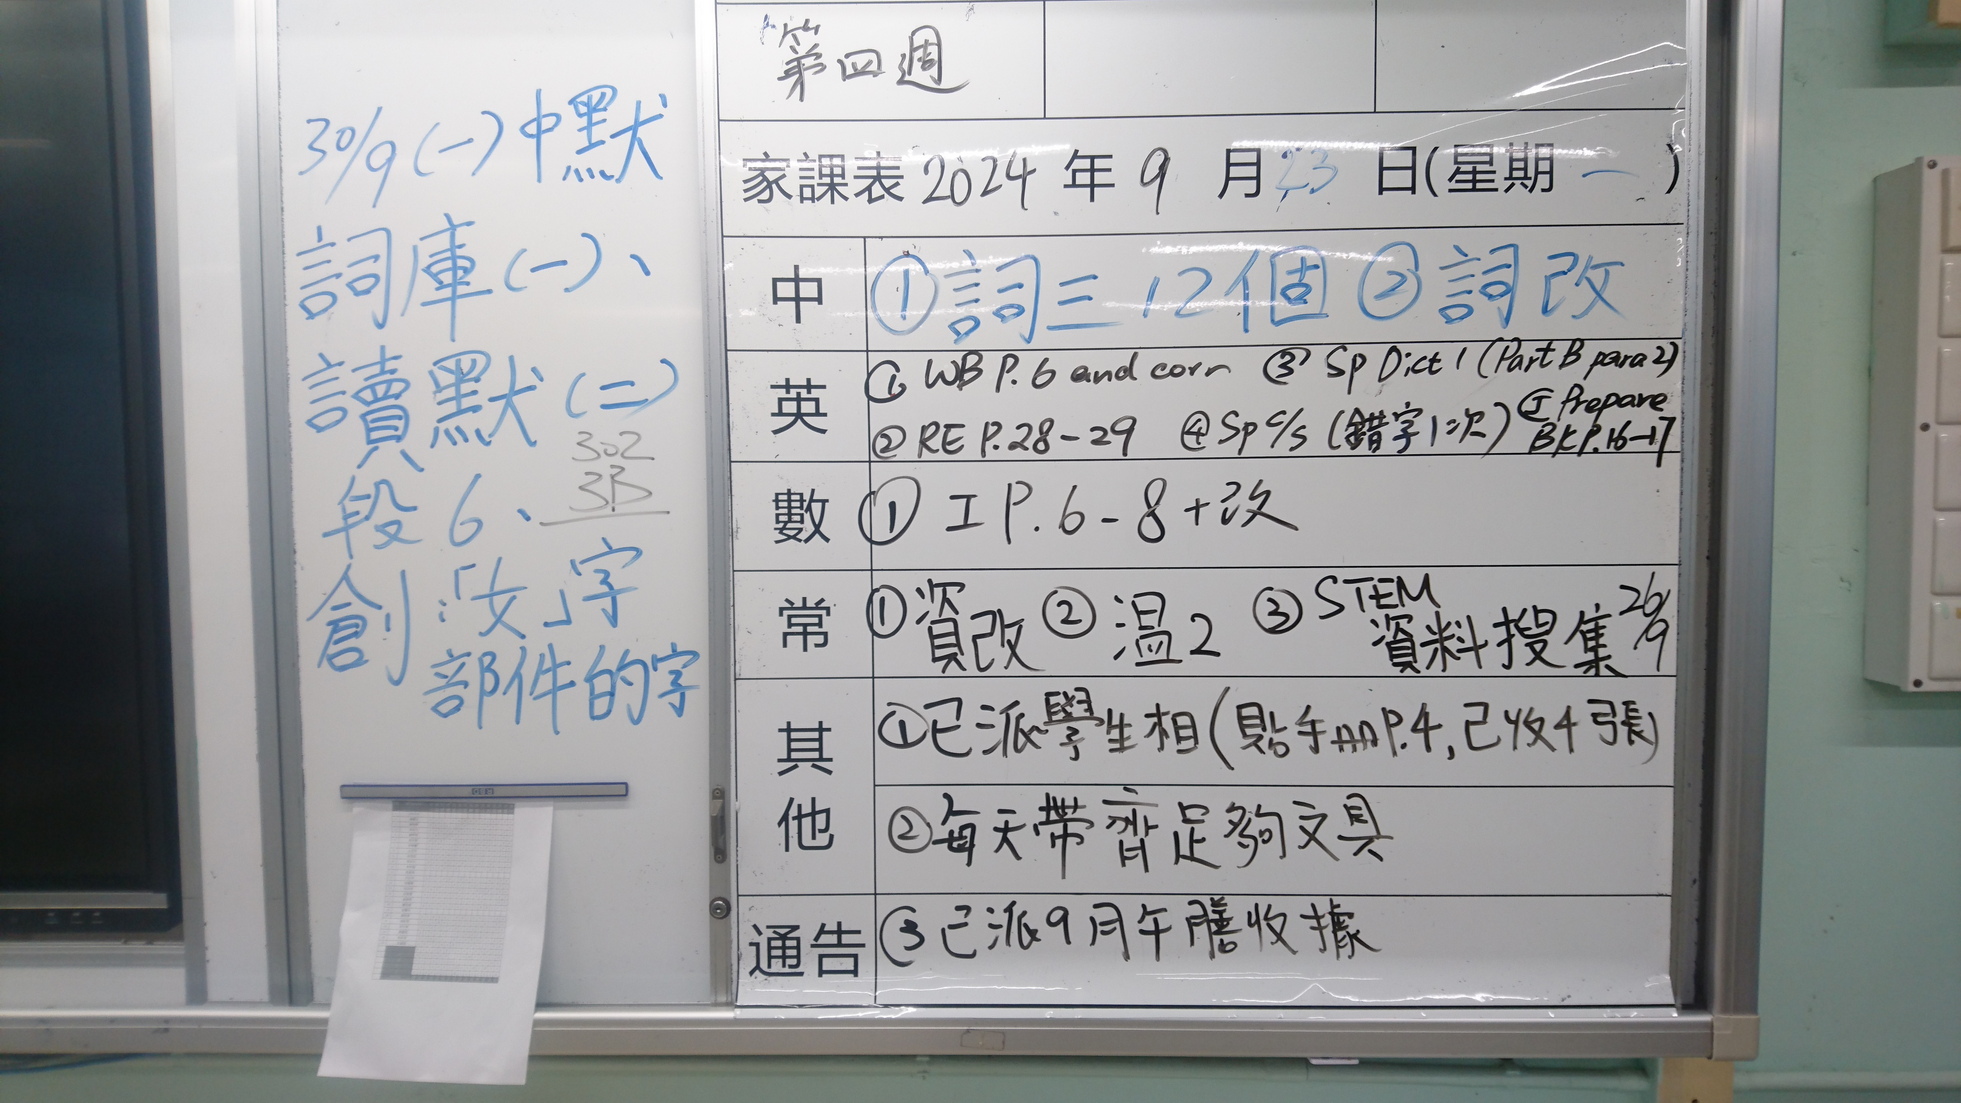 30/9(一)中默
詞庫(一)、
讀默(二)
段6、
302
3B
創:「女」字
部件的字
第四週
家課表2024年9月23日(星期一)
中 ①詞三12個 ②詞改
英 ① WB P.6 and corn ③ Sp Dict 1 (Part B para 2)
② RE P.28-29 ④ Sp c/s (錯字1次) ⑤ Prepare BK P.16-17
數 ① 工 P.6-8+改
常 ①資改 ②温2 ③STEM資料搜集 26/9
其他 ①已派學生相(貼手冊P.4,已收4張)
②每天帶齊足夠文具
通告 ③已派9月午膳收據